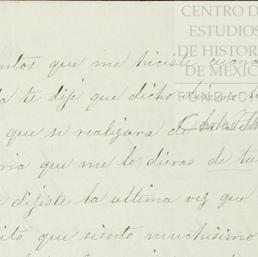 CENTRO DE
ESTUDIOS
DE HISTORIA
DE MÉXICO
ntos que me hiciste, cuand
a te dije que dicho
que se realizara de
ria que me lo dieras de tu
e dijiste la ultima vez que
ito que siento muchisimo